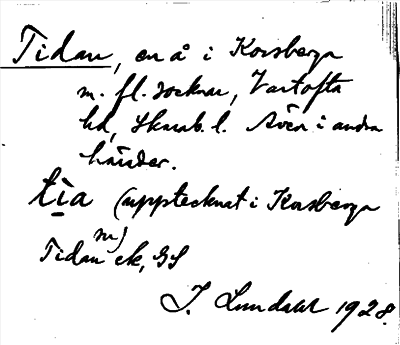 Tidan, en å i Korsberga
m. fl. socknar, Vartofta
hd, Skarab. l. Även i andra
härader.
tìa (upptecknat i Korsberga
sn)
Tidan ek, GS
J. Lundahl 1928.